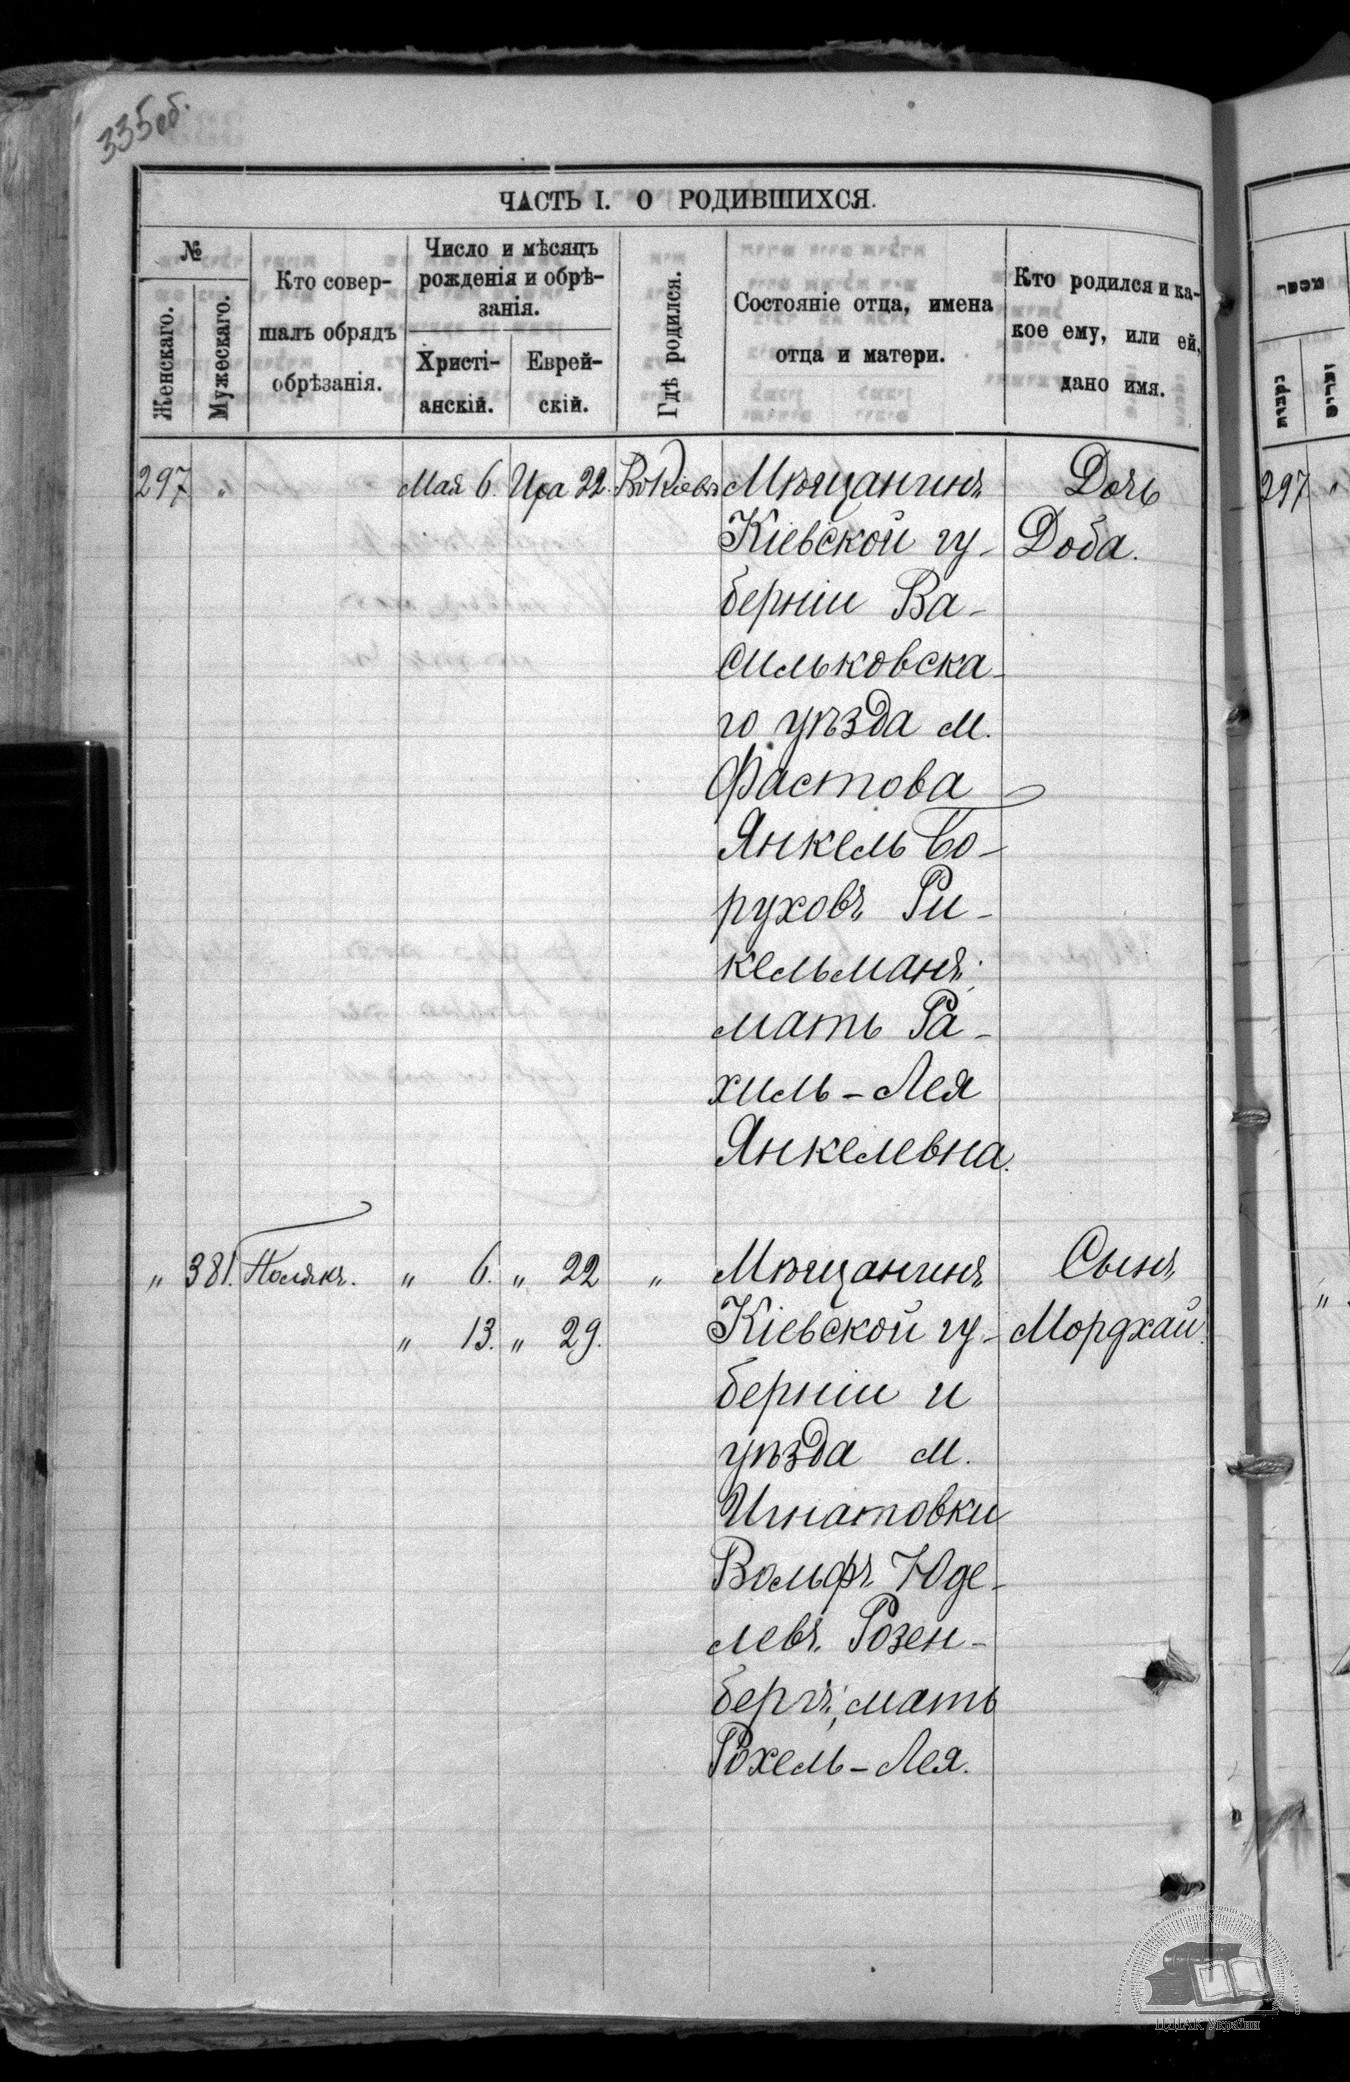 335об.
ЧАСТЬ I. О РОДИВШИХСЯ.
№
Женскаго.
Мужескаго.
Кто совер-
шалъ обрядъ
обрѣзанія.
Число и мѣсяцъ
рожденія и обрѣ-
занія.
Христі-
анскій.
Еврей-
скій.
Гдѣ родился.
Состояніе отца, имена
отца и матери.
Кто родился и ка-
кое ему, или ей,
дано имя.
297 " Мая 6. Ира 22. Въ Кіевѣ Мѣщанинъ Дочь
Кіевской гу- Доба.
берніи Ва-
сильковска-
го уѣзда м.
Фастова
Янкель Бо-
руховъ Ри-
кельманъ;
мать Ра-
хиль-Лея
Янкелевна.
" 381. Полякъ. " 6. " 22 " Мѣщанинъ Сынъ
" 13. " 29. Кіевской гу- Мордхай.
берніи и
уѣзда м.
Игнатовки
Вольфъ Юде-
левъ Розен-
бергъ; мать
Рохель-Лея.
297 "
"
נקבות
זכרים
ЦДІАК України